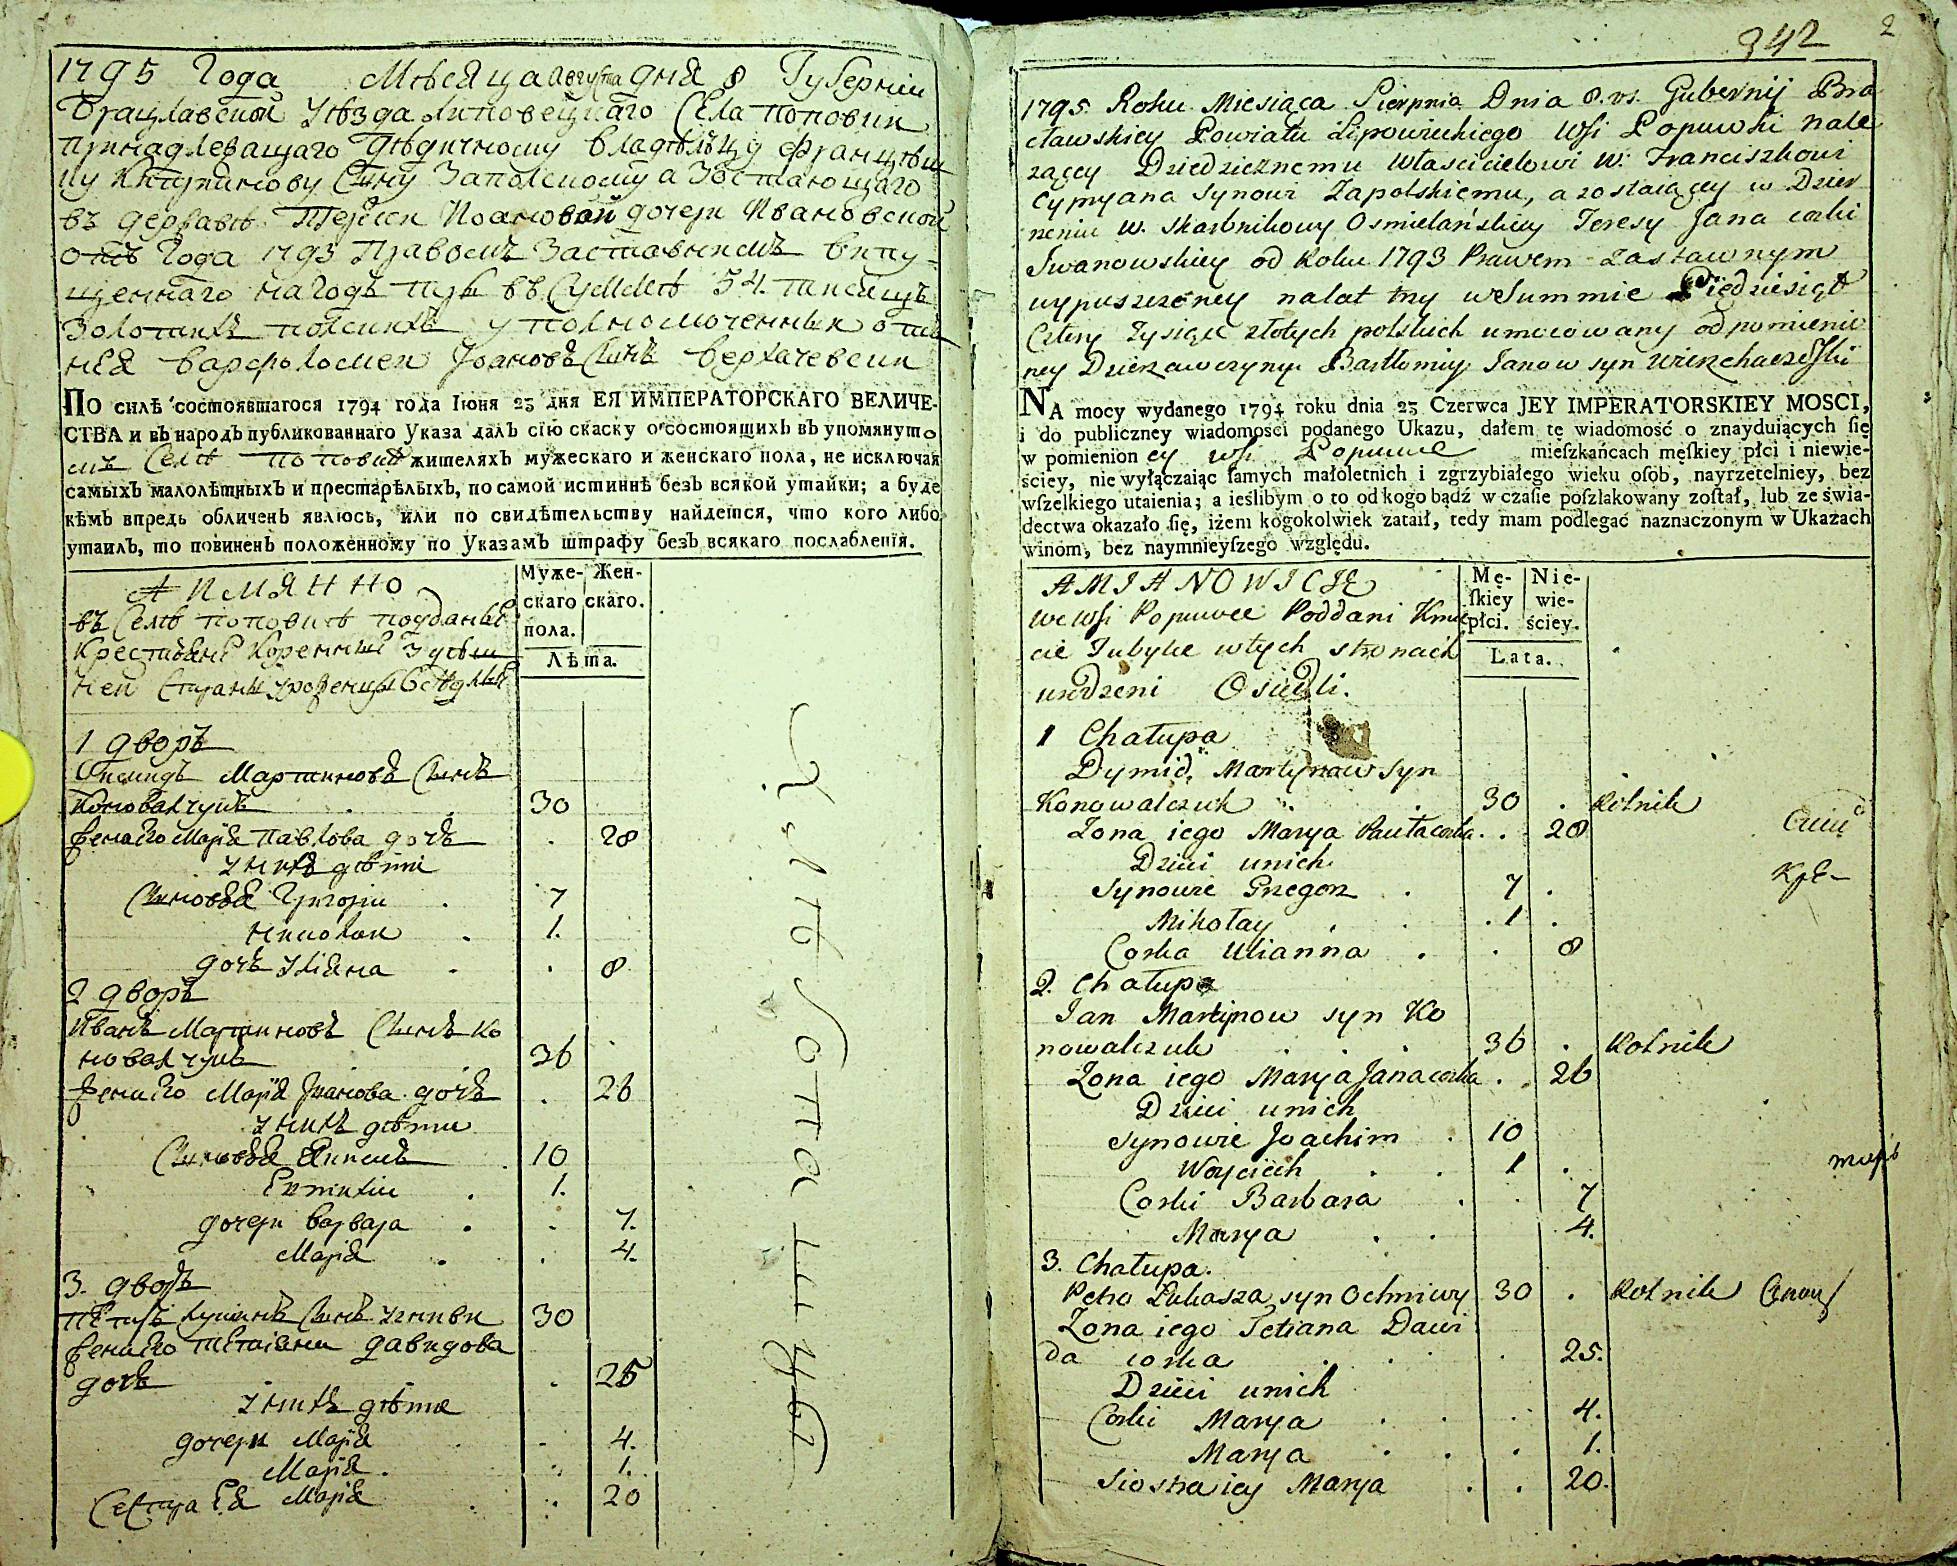 1795 Года Мѣсяца Августа дня 8 Губерніи
Брацлавской Уѣзда Липовецкаго Села Поповки
принадлежащаго Дѣдичному владѣлцу Францѣш
ку Кипріянову Сину Запольскому а Зостающаго
въ державѣ Терѣси Іоановой дочери Ивановской
отъ Года 1793 Правомъ Заставнимъ випу-
щеннаго на Годъ три въ Суммѣ 54. тисящъ
Золотихъ полскихъ уполномоченныи отъ
нея Варфоломеи Іоановъ Синъ Верхачевски
По силѣ состоявшагося 1794 года Іюня 23 дня ЕЯ ИМПЕРАТОРСКАГО ВЕЛИЧЕ-
СТВА и въ народъ публикованнаго Указа далъ сію скаску о состоящихъ въ упомянуто
мъ Селѣ Поповки жителяхъ мужескаго и женскаго пола, не исключая
самыхъ малолѣтныхъ и престарѣлыхъ, по самой истиннѣ безъ всякой утайки; а буде
кѣмъ впредь обличенъ явлюсь, или по свидѣтельству найдется, что кого либо
утаилъ, то повиненъ положенному по Указамъ штрафу безъ всякаго послабленія.
А ИМЯННО
въ Селѣ Поповкѣ подданые
Крестьяне Коренные здѣш
ней Стораны уроженцы осѣдлые
Муже-
скаго
пола.
Жен-
скаго.
Лѣта.
1 дворъ
Димидъ Мартиновъ Синъ
Коновалчукъ 30
жена его Марія Павлова дочъ 28
у нихъ дѣти
Синовья Григорій 7
Николай 1.
дочъ Уліяна 8
2 дворъ
Иванъ Мартиновъ Синъ Ко
новалчукъ 36
жена его Марія Іванова дочъ 26
у нихъ дѣти
Синовья Якимъ 10
1.
дочери Варвара 7.
Марія 4.
3. дворъ
Петръ Лукинъ Синъ 30
жена его Тетіяна Давидова
дочъ 25
у нихъ дѣти
дочери Марія 4.
Марія 1.
Сестра Ея Марія 20
342 2
1795. Roku Miesiąca Sierpnia Dnia 8. vs. Gubernij Bra
cławskiey Powiatu Lipowieckiego Wsi Popuwki nale
żącey Dziedzicznemu właścicielowi W: Franciszkowi
Cypryana synowi Zapolskiemu, a zostaiącey w Dzier
żeniu W. Skarbnikowy Osmielańskiey Teresy Jana corki
Iwanowskiey od Roku 1793 Prawem zastawnym
wypuszczoney na lat trzy w Summie Piędziesiąt
Cztery Tysięcy złotych polskich umocowany od pomienio
ney Dzierzawczyny Bartłomiy Janow syn Wierzchaczewski
NA mocy wydanego 1794 roku dnia 23 Czerwca JEY IMPERATORSKIEY MOSCI,
i do publiczney wiadomości podanego Ukazu, dałem tę wiadomość o znayduiących ſię
w pomienion ey wsi Popuwce mieszkańcach męſkiey płci i niewie-
ściey, nie wyłączaiąc ſamych małoletnich i zgrzybiałego wieku oſob, nayrzetelniey, bez
wſzelkiego utaienia; a ieślibym o to od kogo bądź w czaſie poſzlakowany zoſtał, lub ze świa-
dectwa okazało ſię, iżem kogokolwiek zataił, tedy mam podlegać naznaczonym w Ukazach
winom, bez naymnieyſzego względu.
AMIANOWICIE
we Wsi Popuwce Poddani Kmie
cie Tubylce w tych stronach
urodzeni Osiedli.
Mę-
ſkiey
płci.
Nie-
wie-
ściey.
Lata.
1 Chałupa
Dymid. Martynow syn
Konowalczuk 30 Rolnik
Zona iego Marya Pawła corka 28
Dzieci u nich
Synowie Grzegorz 7
Mikołay 1
Corka Ulianna 8
2. Chałupa
Ian Martynow syn Ko
nowalczuk 36 Rolnik
Zona iego Marya Jana corka 26
Dzieci u nich
Synowie Joachim 10
Woyciech 1
Corki Barbara 7
Marya 4.
3. Chałupa.
Petro Łukasza syn Ochmiwy 30 Rolnik
Zona iego Tetiana Dawi
da corka 25.
Dzieci u nich
Corki Marya 4.
Marya 1.
Siostra iey Marya 20.